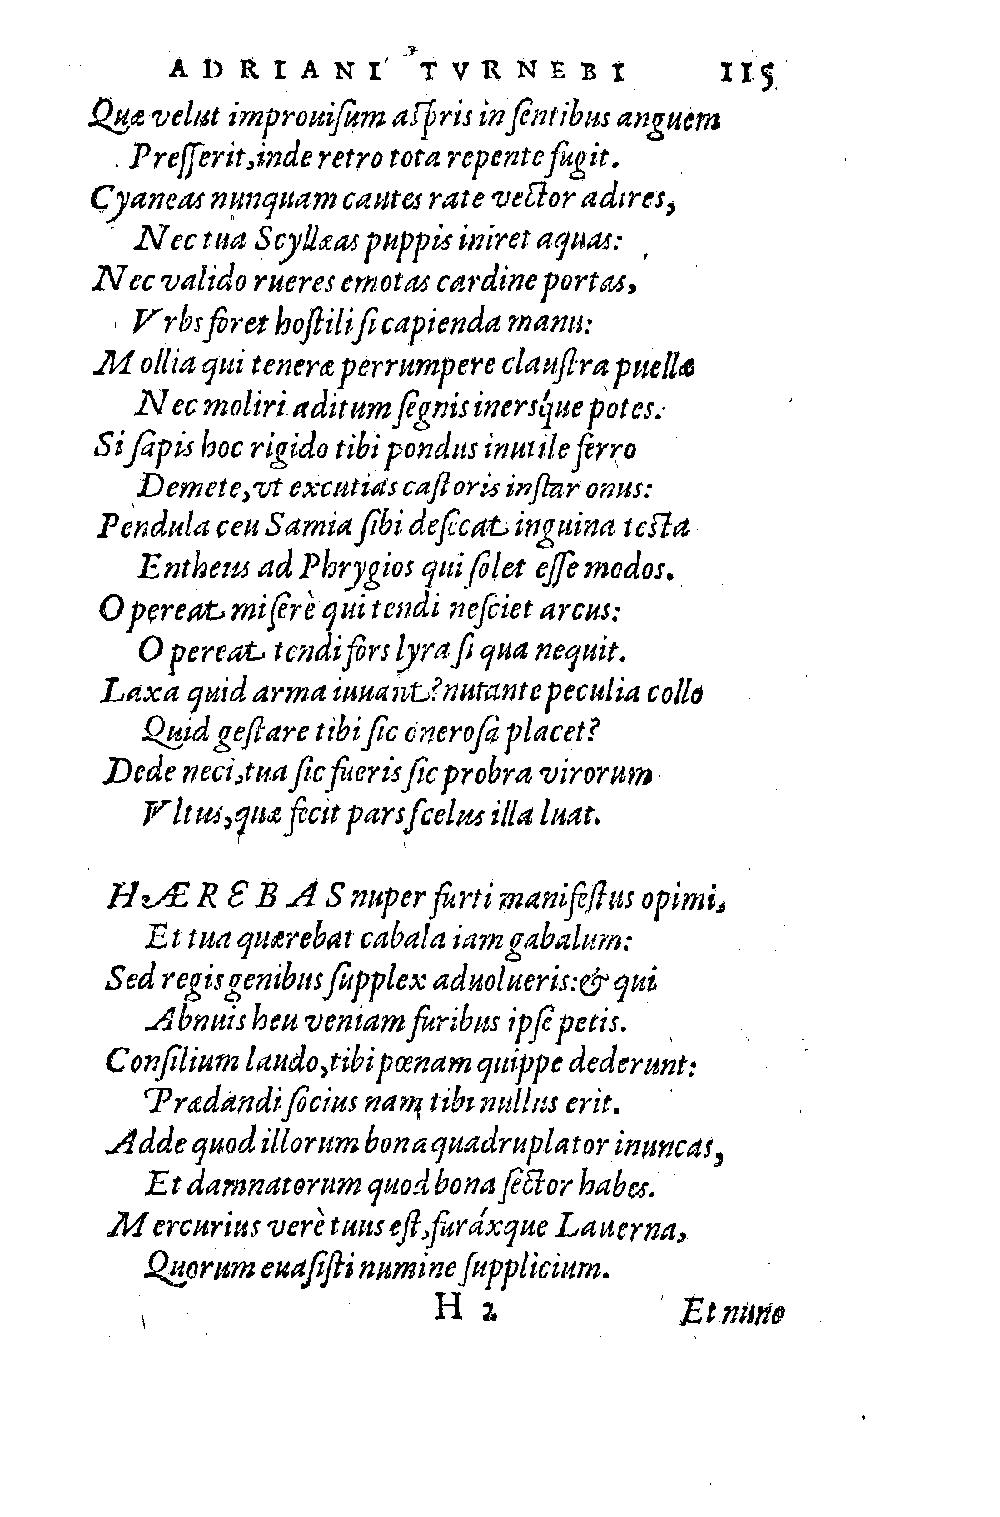 ADRIANI TVRNEBI 115
Quæ velut improuiſum aſpris in ſentibus anguem
Preſſerit, inde retro tota repente fugit.
Cyaneas nunquam cautes rate vector adires,
Nec tua Scyllæas puppis iniret aquas:
Nec valido rueres emotas cardine portas,
Vrbs foret hoſtili ſi capienda manu:
Mollia qui teneræ perrumpere clauſtra puellæ
Nec moliri aditum ſegnis inérsque potes.
Si ſapis hoc rigido tibi pondus inutile ferro
Demete, vt excutias caſtoris inſtar onus:
Pendula ceu Samia ſibi deſicat inguina teſta
Entheus ad Phrygios qui ſolet eſſe modos.
O pereat miſerè qui tendi neſciet arcus:
O pereat tendi fors lyra ſi qua nequit.
Laxa quid arma iuuant? nutante peculia collo
Quid geſtare tibi ſic oneroſa placet?
Dede neci, tua ſic fueris ſic probra virorum
Vltus, quæ fecit pars ſcelus illa luat.
HÆREBAS nuper furti manifeſtus opimi,
Et tua quærebat cabala iam gabalum:
Sed regis genibus ſupplex aduolueris: & qui
Abnuis heu veniam furibus ipſe petis.
Conſilium laudo, tibi pœnam quippe dederunt:
Prædandi ſocius nam tibi nullus erit.
Adde quod illorum bona quadruplator inuncas,
Et damnatorum quod bona ſector habes.
Mercurius verè tuus eſt, furáxque Lauerna,
Quorum euaſiſti numine ſupplicium.
H 2 Et nunc